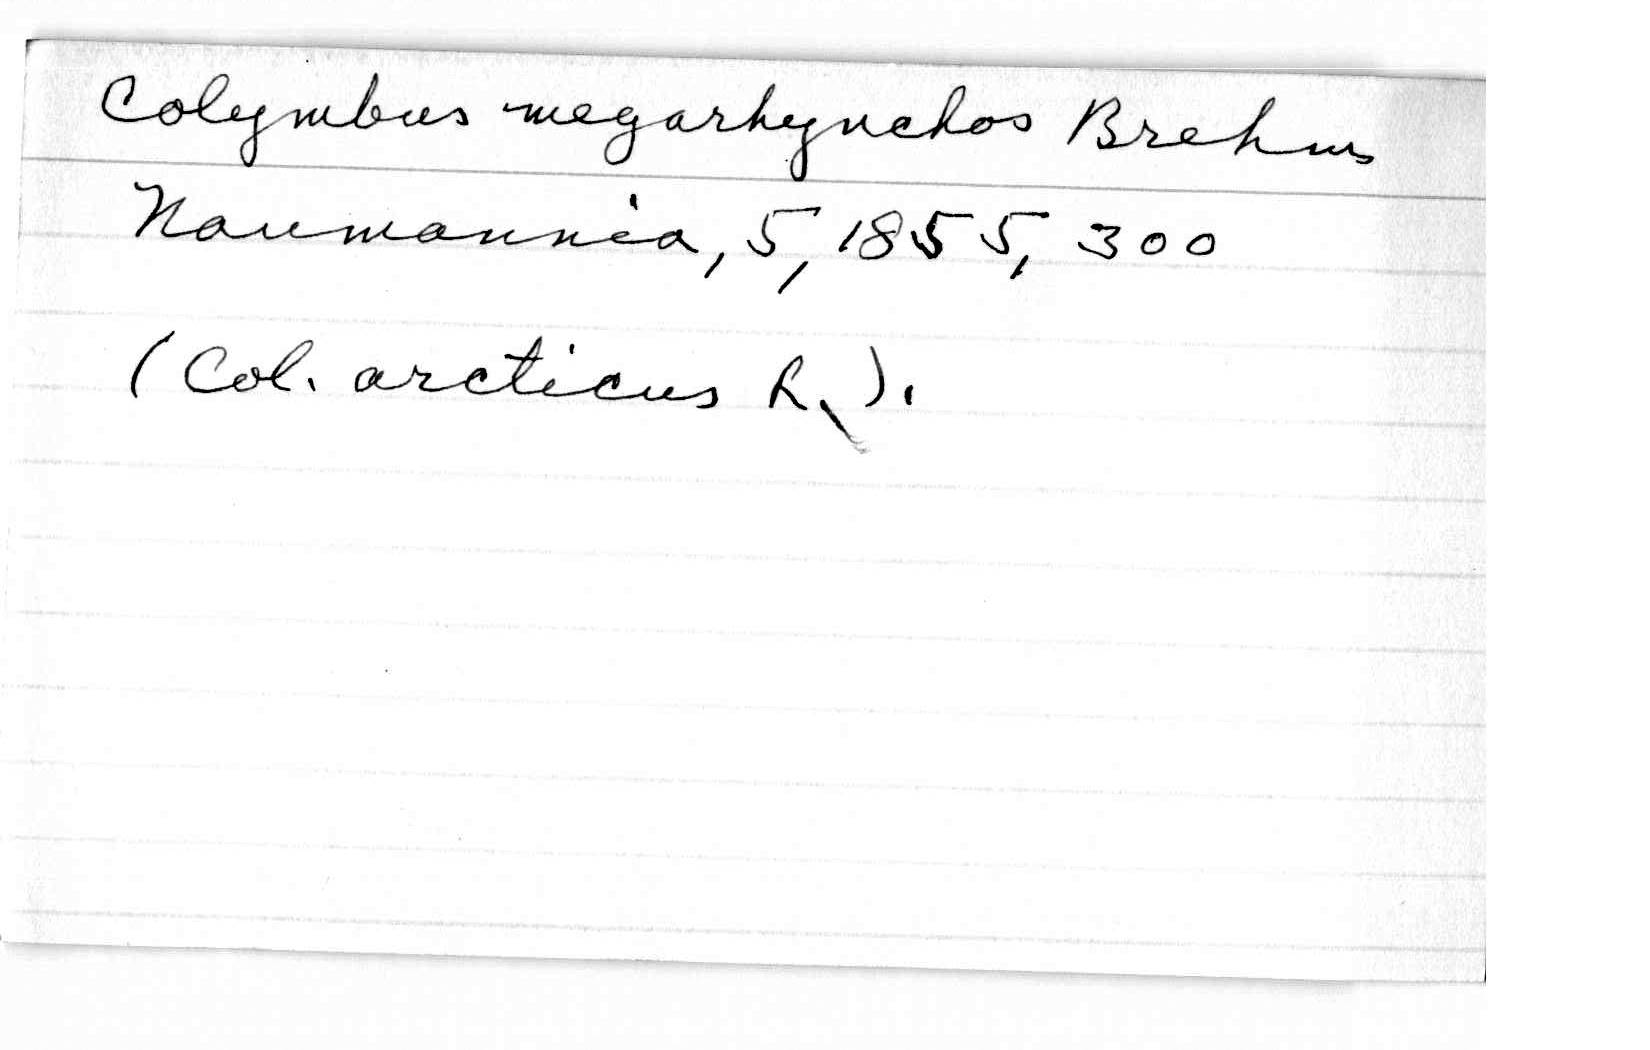 Colymbus megarhynchos Brehm
Naumannia, 5, 1855, 300
(Col. arcticus L.).